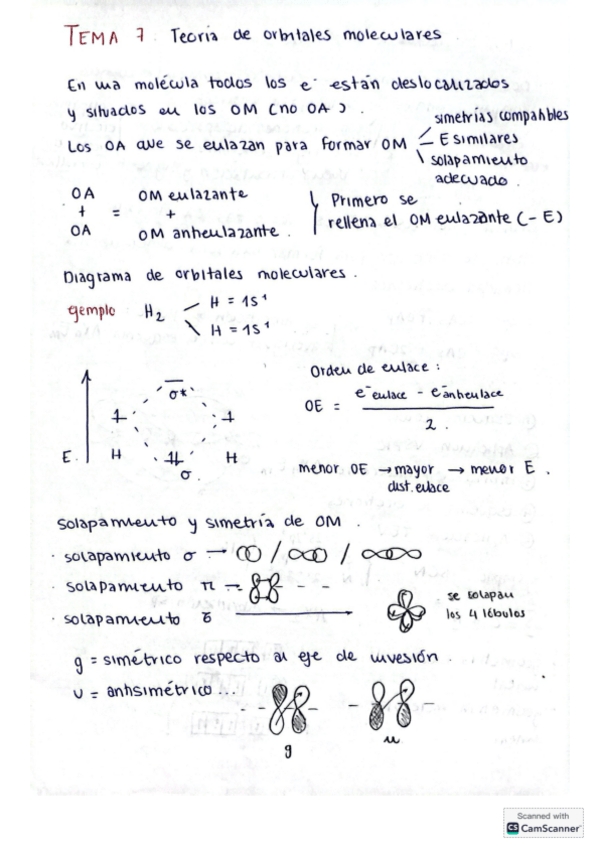 TEMA 7 Teoría de orbitales moleculares
En una molécula todos los e⁻ están deslocalizados
y situados en los OM (no OA).
Los OA que se enlazan para formar OM
simetrías compatibles
E similares
solapamiento
adecuado.
OA + OA = OM enlazante + OM antienlazante.
Primero se
rellena el OM enlazante (- E)
Diagrama de orbitales moleculares.
ejemplo H₂
H = 1s¹
H = 1s¹
Orden de enlace:
OE = e⁻enlace - e⁻antienlace / 2.
σ*
E. H σ. H
menor OE → mayor dist. enlace → menor E.
Solapamiento y simetría de OM.
· solapamiento σ →
· solapamiento π →
· solapamiento δ →
se solapan
los 4 lóbulos
g = simétrico respecto al eje de inversión.
u = antisimétrico...
g
u
Scanned with
CS CamScanner